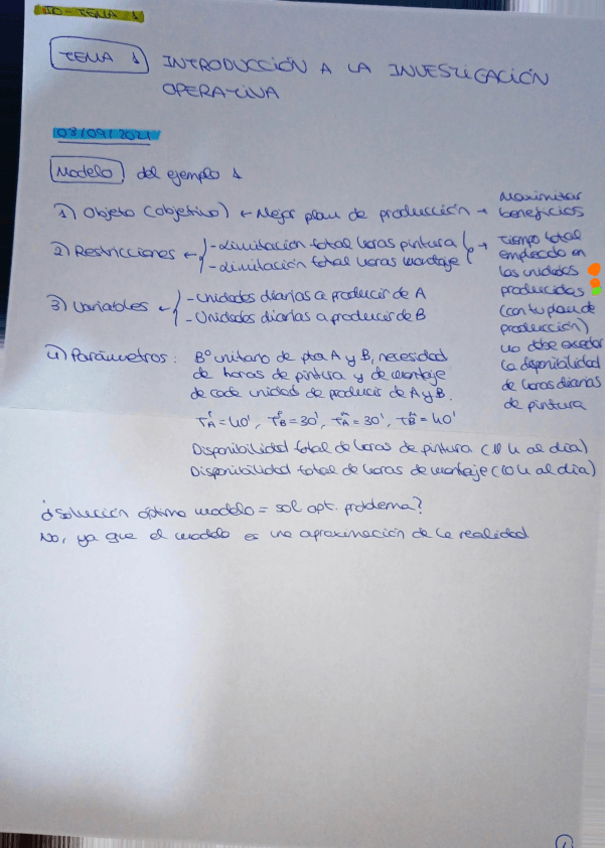 IO - TEMA 1
TEMA 1 INTRODUCCIÓN A LA INVESTIGACIÓN
OPERATIVA
03/09/2021
Modelo del ejemplo 1
1) Objeto (objetivo) ← Mejor plan de producción → Maximizar beneficios
2) Restricciones ← { - Limitación total horas pintura
- Limitación total horas montaje } →
Tiempo total
empleado en
las unidades
producidas
(con tu plan de
producción)
no debe exceder
la disponibilidad
de horas diarias
de pintura
3) Variables ← { - Unidades diarias a producir de A
- Unidades diarias a producir de B
4) Parámetros: Bº unitario de pta A y B, necesidad
de horas de pintura y de montaje
de cada unidad de producir de A y B.
T_A^P = 40', T_B^P = 30', T_A^M = 30', T_B^M = 40'
Disponibilidad total de horas de pintura (10 h al día)
Disponibilidad total de horas de montaje (10 h al día)
¿Solución óptima modelo = sol opt. problema?
No, ya que el modelo es una aproximación de la realidad
1